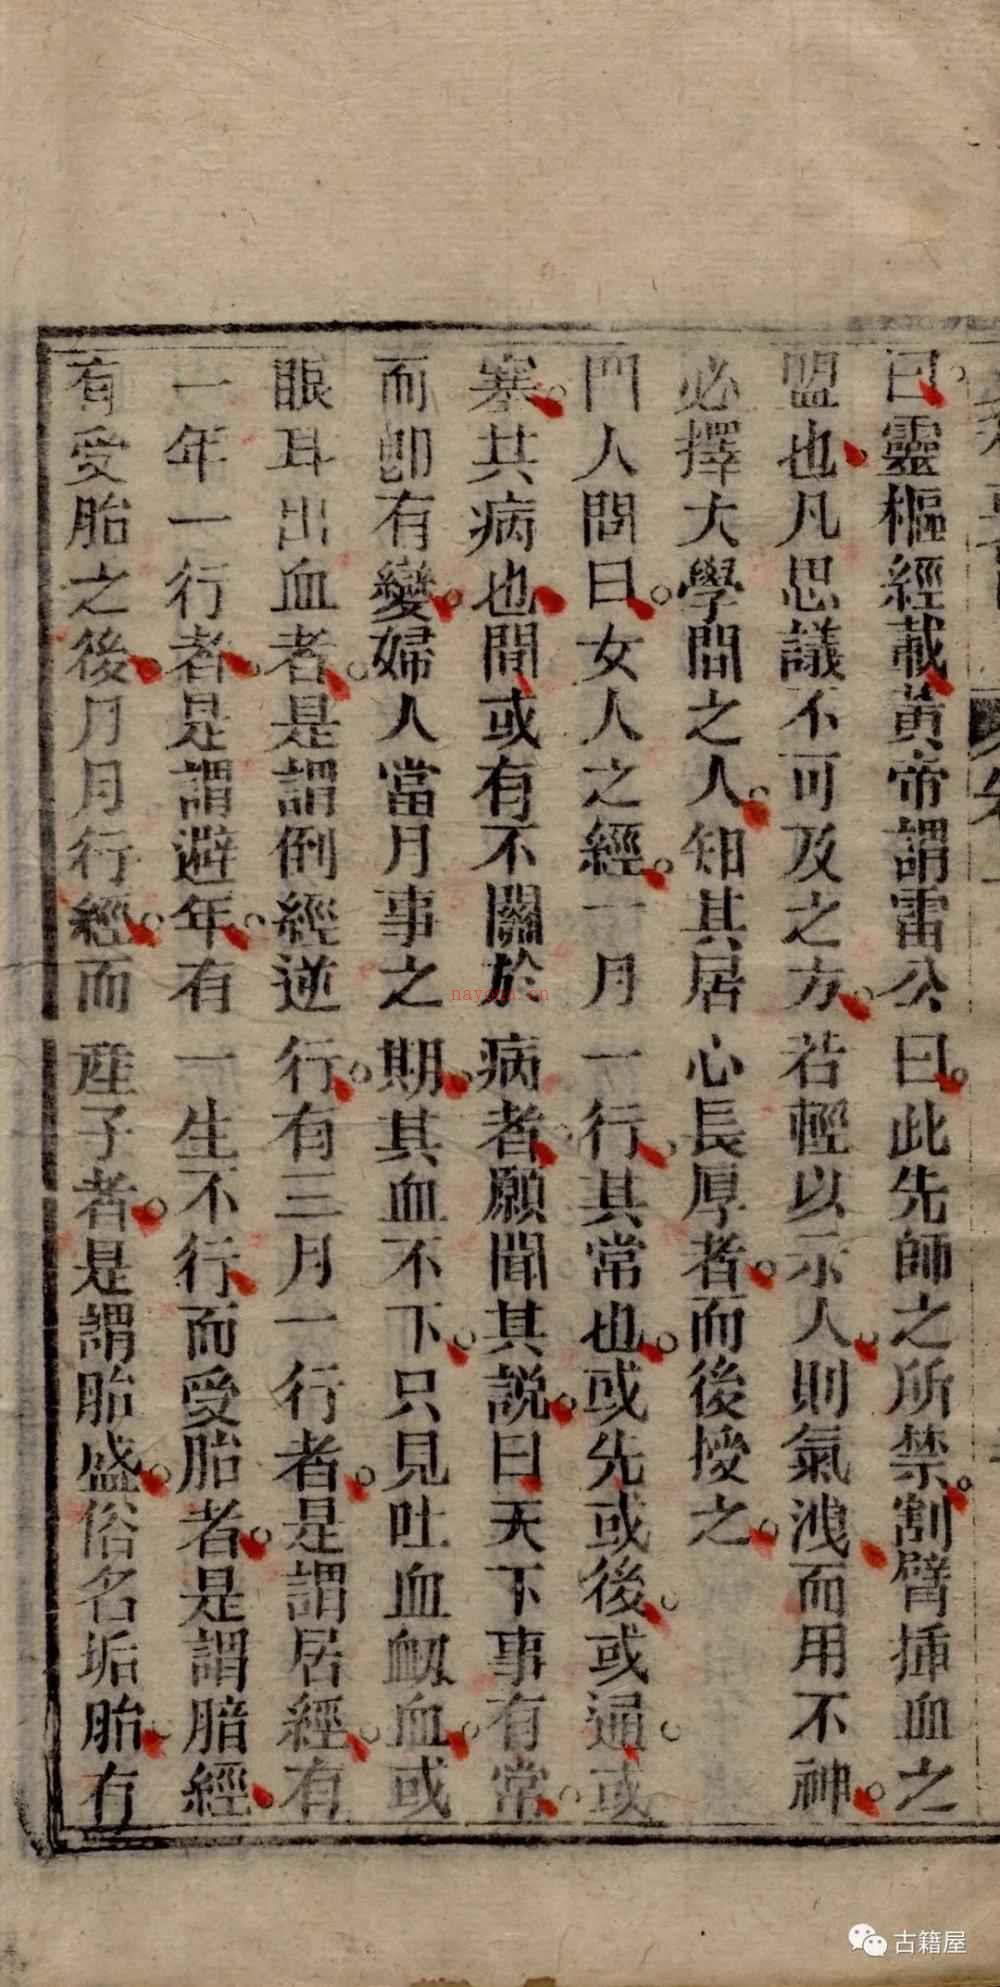 曰靈樞經載黃帝謂雷公曰此先師之所禁割臂揷血之
盟也凡思議不可及之方若輕以示人則氣洩而用不神
必擇大學問之人知其居心長厚者而後授之
門人問曰女人之經一月一行其常也或先或後或通或
塞其病也間或有不關於病者願聞其說曰天下事有常
而卽有變婦人當月事之期其血不下只見吐血衂血或
眼耳出血者是謂倒經逆行有三月一行者是謂居經有
一年一行者是謂避年有一生不行而受胎者是謂暗經
有受胎之後月月行經而産子者是謂胎盛俗名垢胎有
nayona.cn
古籍屋